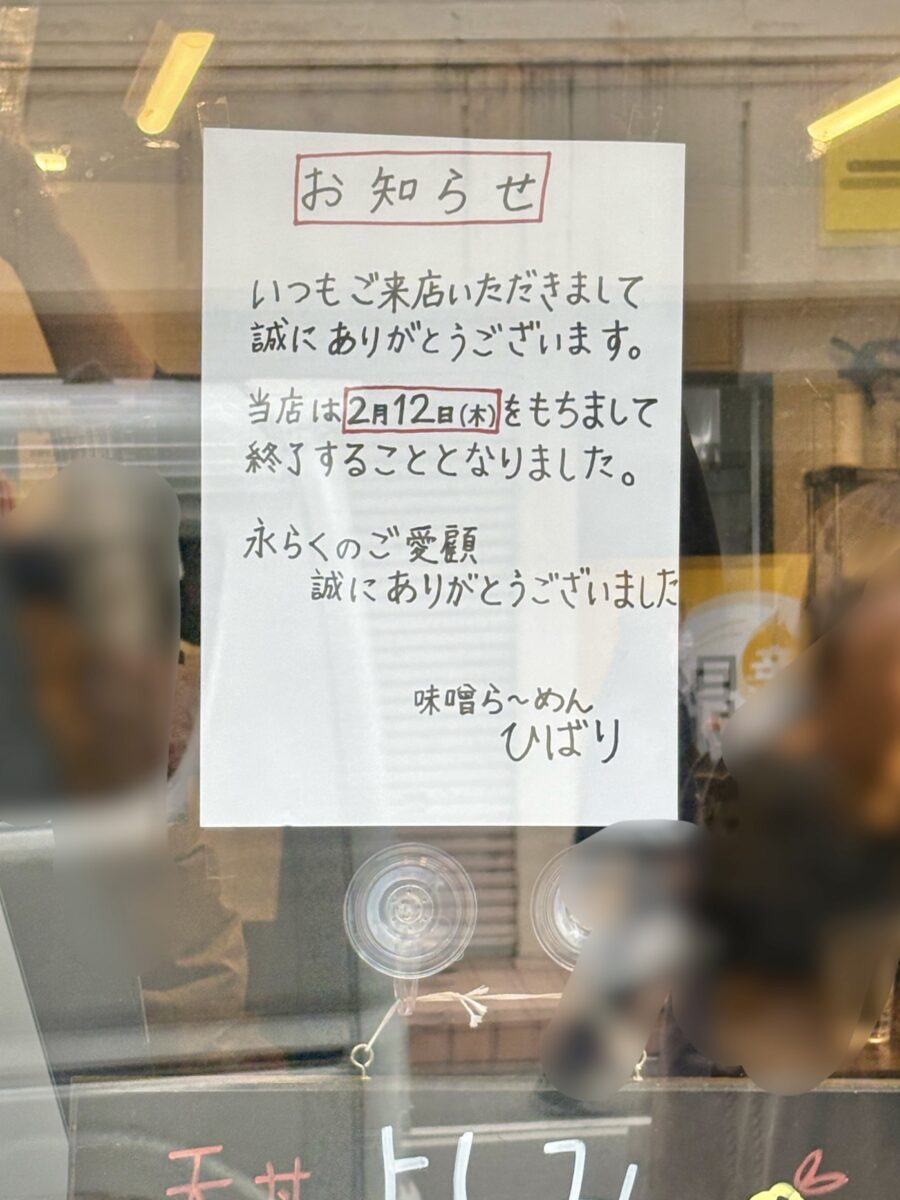 お知らせ
いつもご来店いただきまして
誠にありがとうございます。
当店は2月12日(木)をもちまして
終了することとなりました。
永らくのご愛顧
誠にありがとうございました
味噌ら〜めん
ひばり
天丼